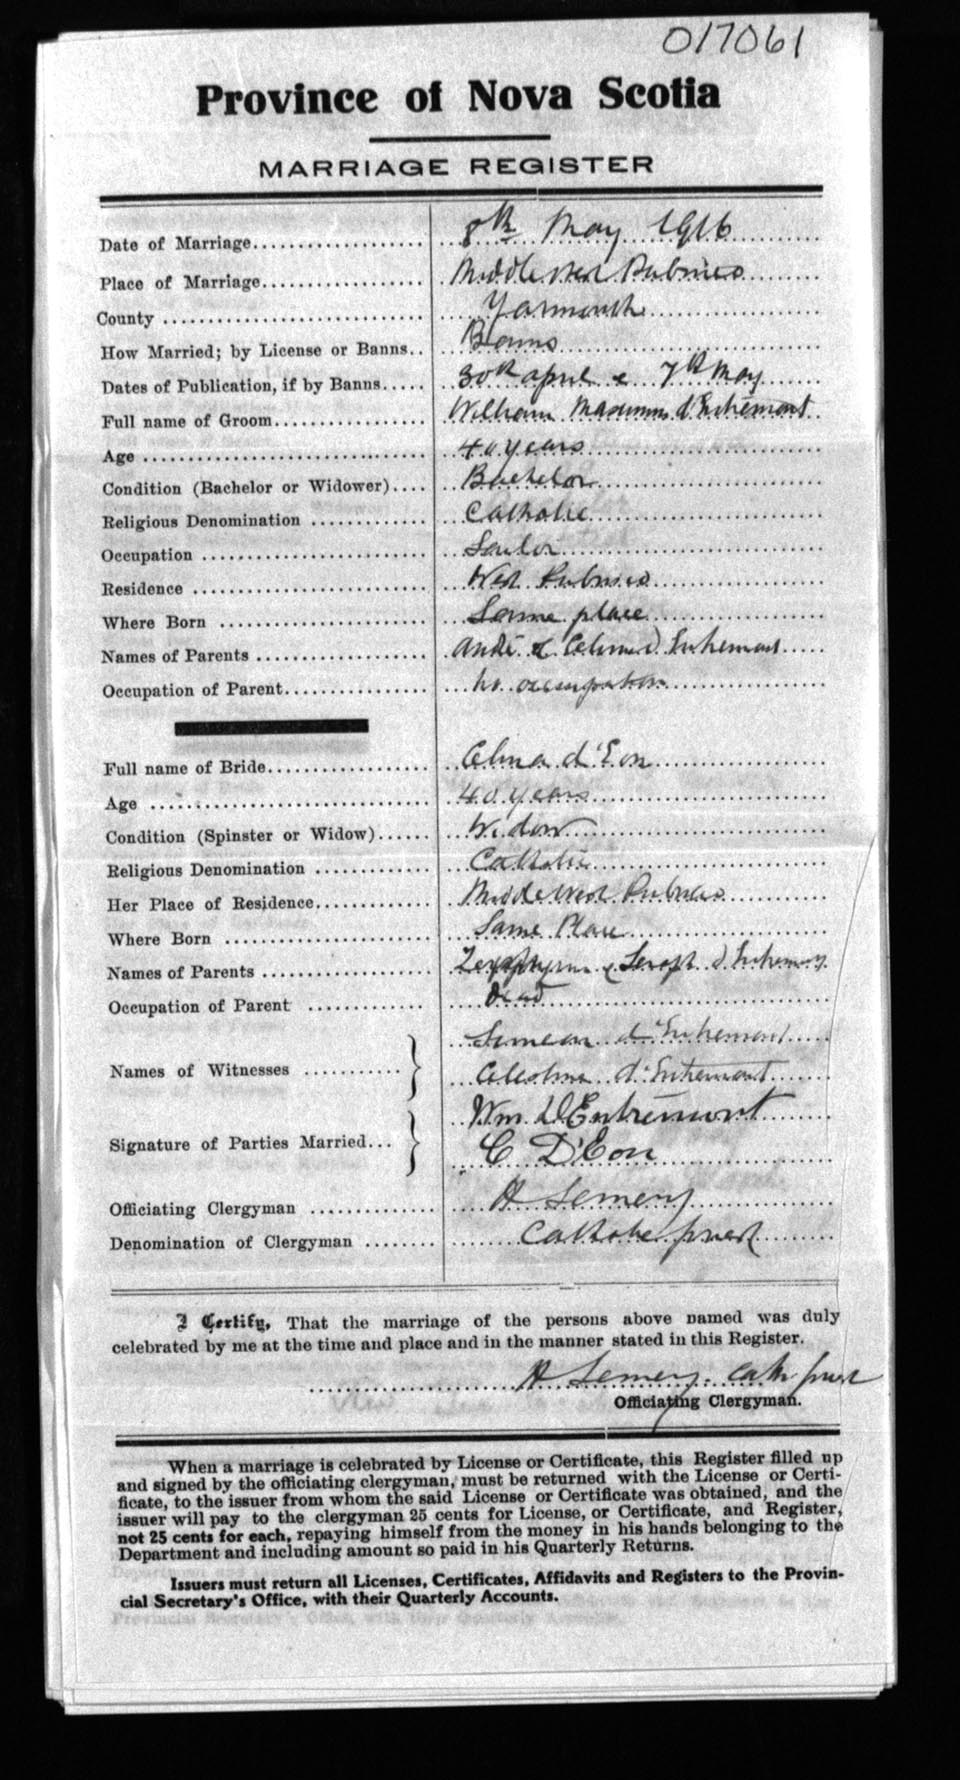 017061
Province of Nova Scotia
MARRIAGE REGISTER
Date of Marriage 8th May 1916
Place of Marriage Middle West Pubnico
County Yarmouth
How Married; by License or Banns Banns
Dates of Publication, if by Banns 30th april & 7th May
Full name of Groom William d'Entremont
Age 40 years
Condition (Bachelor or Widower) Bachelor
Religious Denomination Catholic
Occupation Sailor
Residence West Pubnico
Where Born Same place
Names of Parents André & d'Entremont
Occupation of Parent no occupation
Full name of Bride Celina d'Eon
Age 40 years
Condition (Spinster or Widow) Widow
Religious Denomination Catholic
Her Place of Residence Middle West Pubnico
Where Born Same Place
Names of Parents & d'Entremont
Occupation of Parent Dead
Names of Witnesses Simeon d'Entremont
Celestine d'Entremont
Signature of Parties Married Wm D'Entremont
C D'Eon
Officiating Clergyman A Semery
Denomination of Clergyman Catholic priest
I Certify, That the marriage of the persons above named was duly
celebrated by me at the time and place and in the manner stated in this Register.
A Semery Cath priest
Officiating Clergyman.
When a marriage is celebrated by License or Certificate, this Register filled up
and signed by the officiating clergyman, must be returned with the License or Certi-
ficate, to the issuer from whom the said License or Certificate was obtained, and the
issuer will pay to the clergyman 25 cents for License, or Certificate, and Register,
not 25 cents for each, repaying himself from the money in his hands belonging to the
Department and including amount so paid in his Quarterly Returns.
Issuers must return all Licenses, Certificates, Affidavits and Registers to the Provin-
cial Secretary's Office, with their Quarterly Accounts.